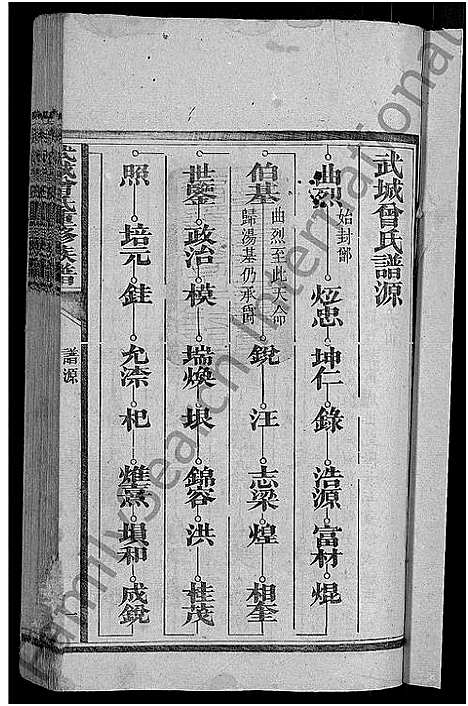 武城曾氏譜源
曲烈 始封鄫 炫忠 坤仁 錄 浩源 富材 焜
伯基 曲烈至此天命歸湯基仍承爵 銳 汪 志梁 煌 相奎
世鑒 政治 模 瑞煥 垠 錦容 洪 桂茂
照 培元 銈 允渿 杞 熏 塤和 成銳
武城曾氏重修族譜
譜源
一
FamilySearch International